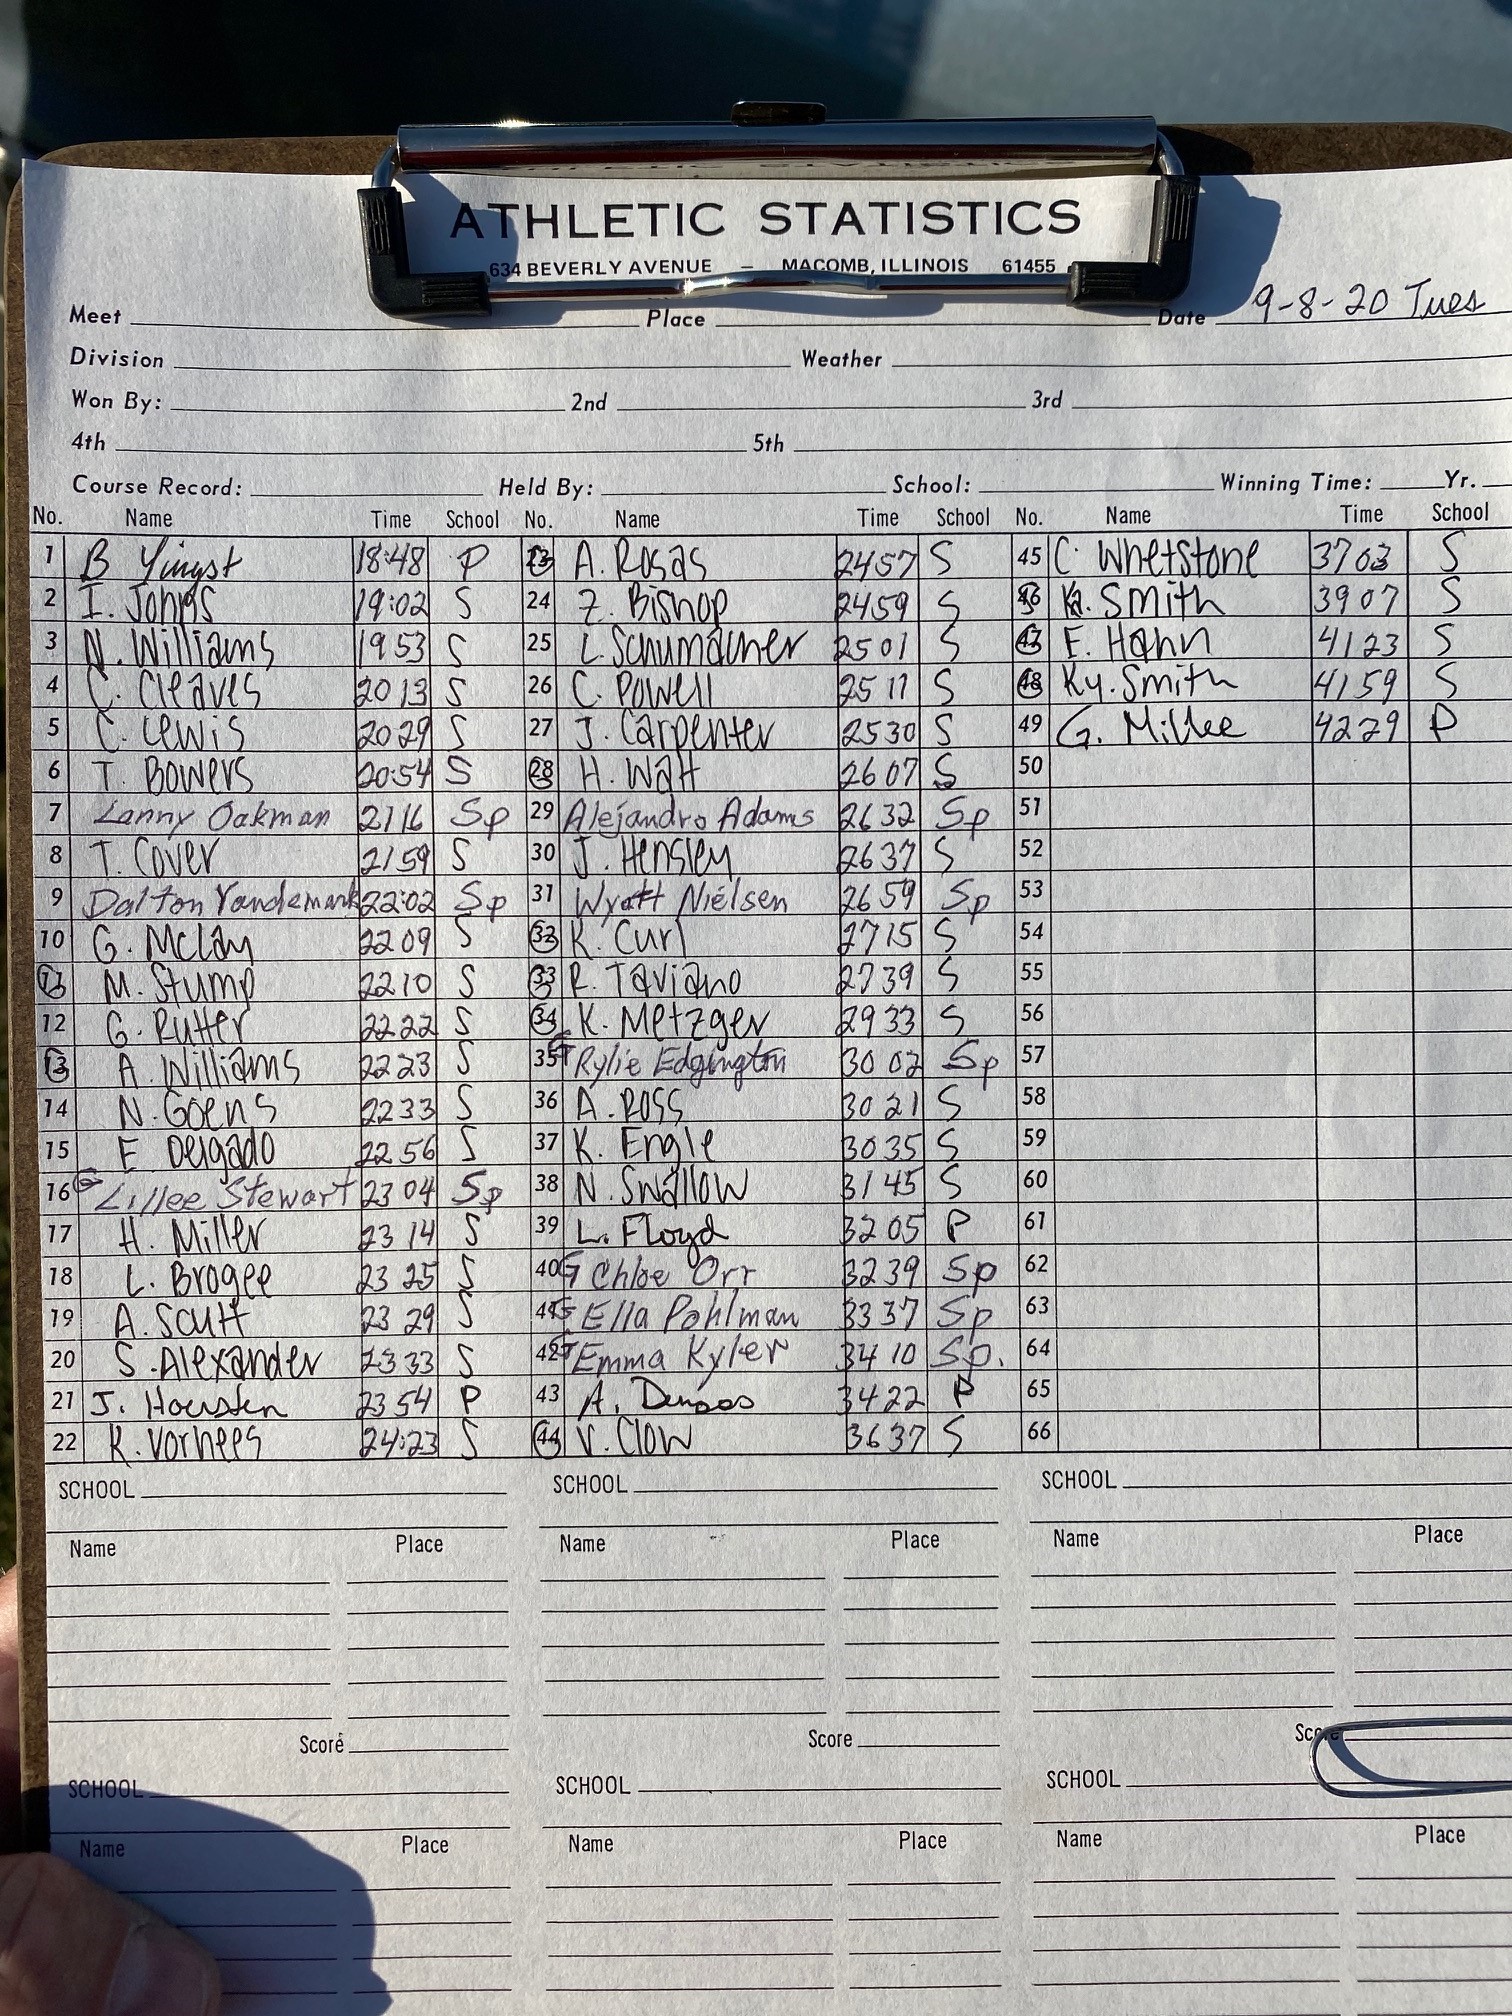 ATHLETIC STATISTICS
634 BEVERLY AVENUE — MACOMB, ILLINOIS 61455
Meet Place Date 9-8-20 Tues
Division Weather
Won By: 2nd 3rd
4th 5th
Course Record: Held By: School: Winning Time: Yr.
No. Name Time School No. Name Time School No. Name Time School
1 B Yingst 18:48 P 23 A. Rosas 2457 S 45 C Whetstone 3703 S
2 I. Jones 19:02 S 24 Z. Bishop 2459 S 46 Ka. Smith 3907 S
3 N. Williams 1953 S 25 L. Schumacher 2501 S 47 E. Hahn 4123 S
4 C. Cleaves 2013 S 26 C. Powell 2511 S 48 Ky. Smith 4159 S
5 C. Lewis 2029 S 27 J. Carpenter 2530 S 49 G. Millee 4229 P
6 T. Bowers 20:54 S 28 H. Watt 2607 S 50
7 Lanny Oakman 2116 Sp 29 Alejandro Adams 2632 Sp 51
8 T. Cover 2159 S 30 J. Hensley 2637 S 52
9 Dalton Vandemark 22:02 Sp 31 Wyatt Nielsen 2659 Sp 53
10 G. McLay 2209 S 32 K. Curl 2715 S 54
11 M. Stump 2210 S 33 R. Taviano 2739 S 55
12 G. Rutter 2222 S 34 K. Metzger 2933 S 56
13 A. Williams 2223 S 35 G Rylie Edgington 3002 Sp 57
14 N. Goens 2233 S 36 A. Ross 3021 S 58
15 E Delgado 2256 S 37 K. Engle 3035 S 59
16 G Lillee Stewart 2304 Sp 38 N. Swallow 3145 S 60
17 H. Miller 2314 S 39 L. Floyd 3205 P 61
18 L. Brogee 2325 S 40 G Chloe Orr 3239 Sp 62
19 A. Scutt 2329 S 41 G Ella Pohlman 3337 Sp 63
20 S. Alexander 2333 S 42 G Emma Kyler 3410 Sp. 64
21 J. Housten 2354 P 43 A. 3422 P 65
22 K. Vorhees 24:23 S 44 V. Clow 3637 S 66
SCHOOL SCHOOL SCHOOL
Name Place Name Place Name Place
Score Score Score
SCHOOL SCHOOL SCHOOL
Name Place Name Place Name Place